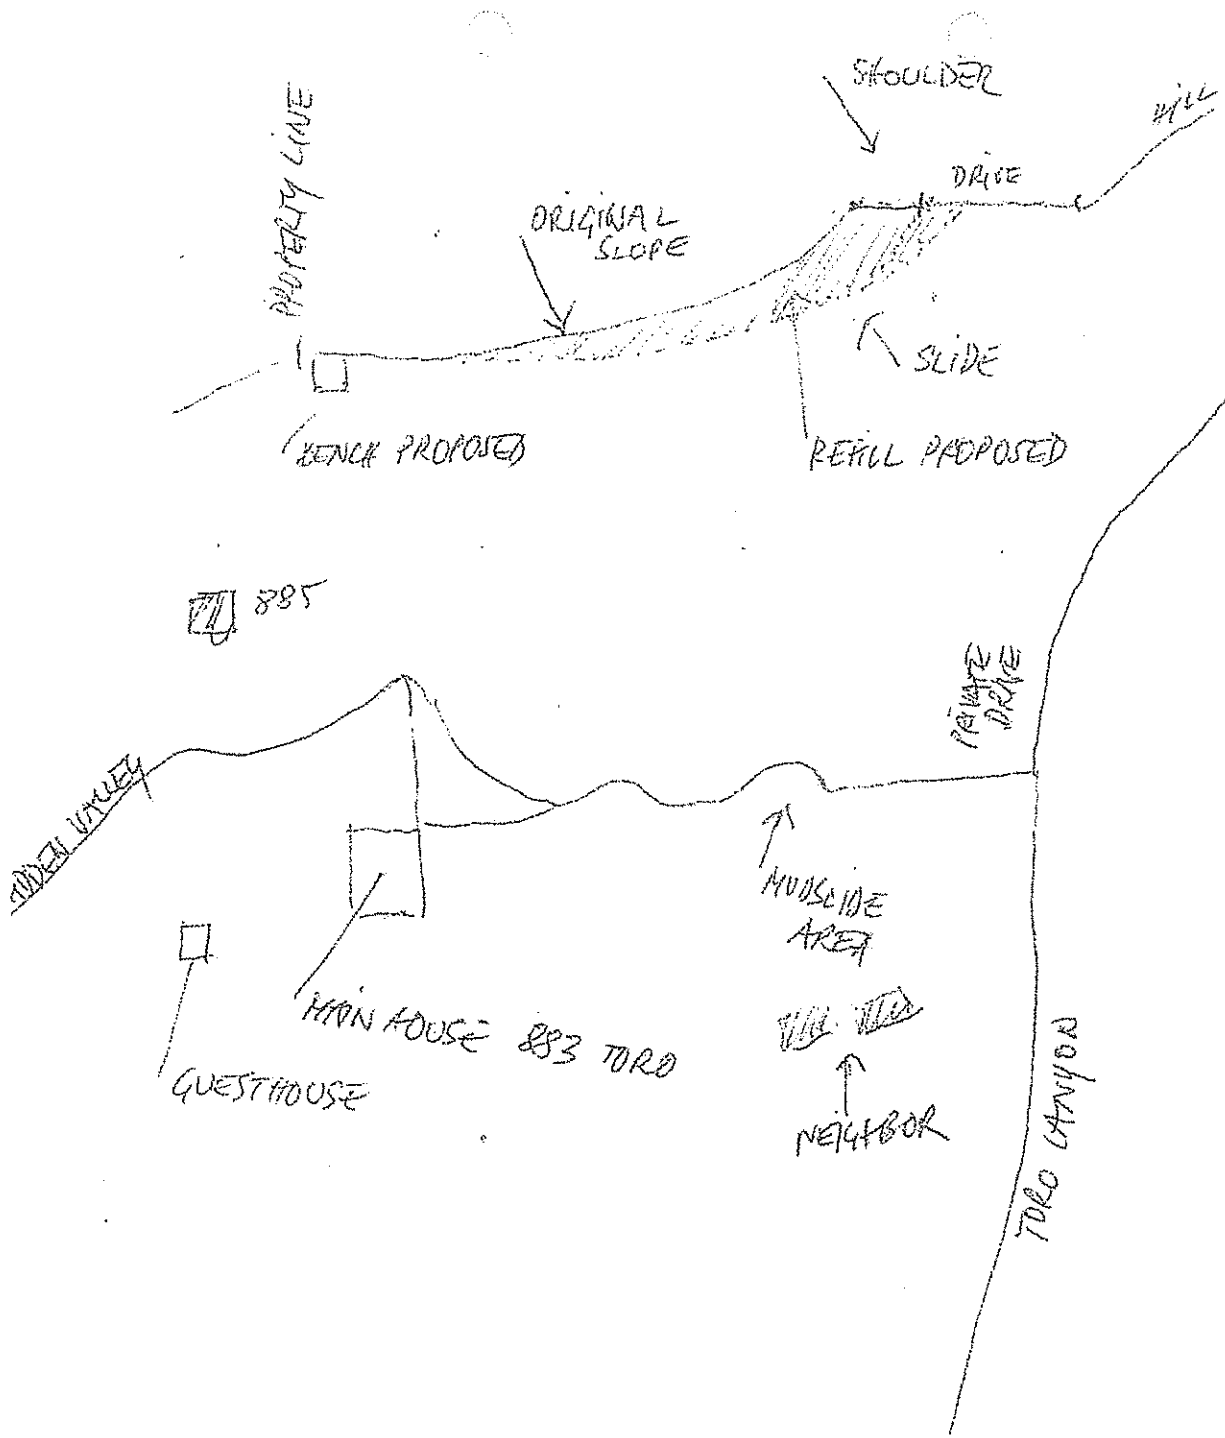 SHOULDER
HILL
PROPERTY LINE
DRIVE
ORIGINAL
SLOPE
SLIDE
PROPOSED
REFILL PROPOSED
885
PRIVATE
DRIVE
VALLEY
MUDSLIDE
AREA
MAIN HOUSE 883 TORO
GUESTHOUSE
NEIGHBOR
TORO CANYON